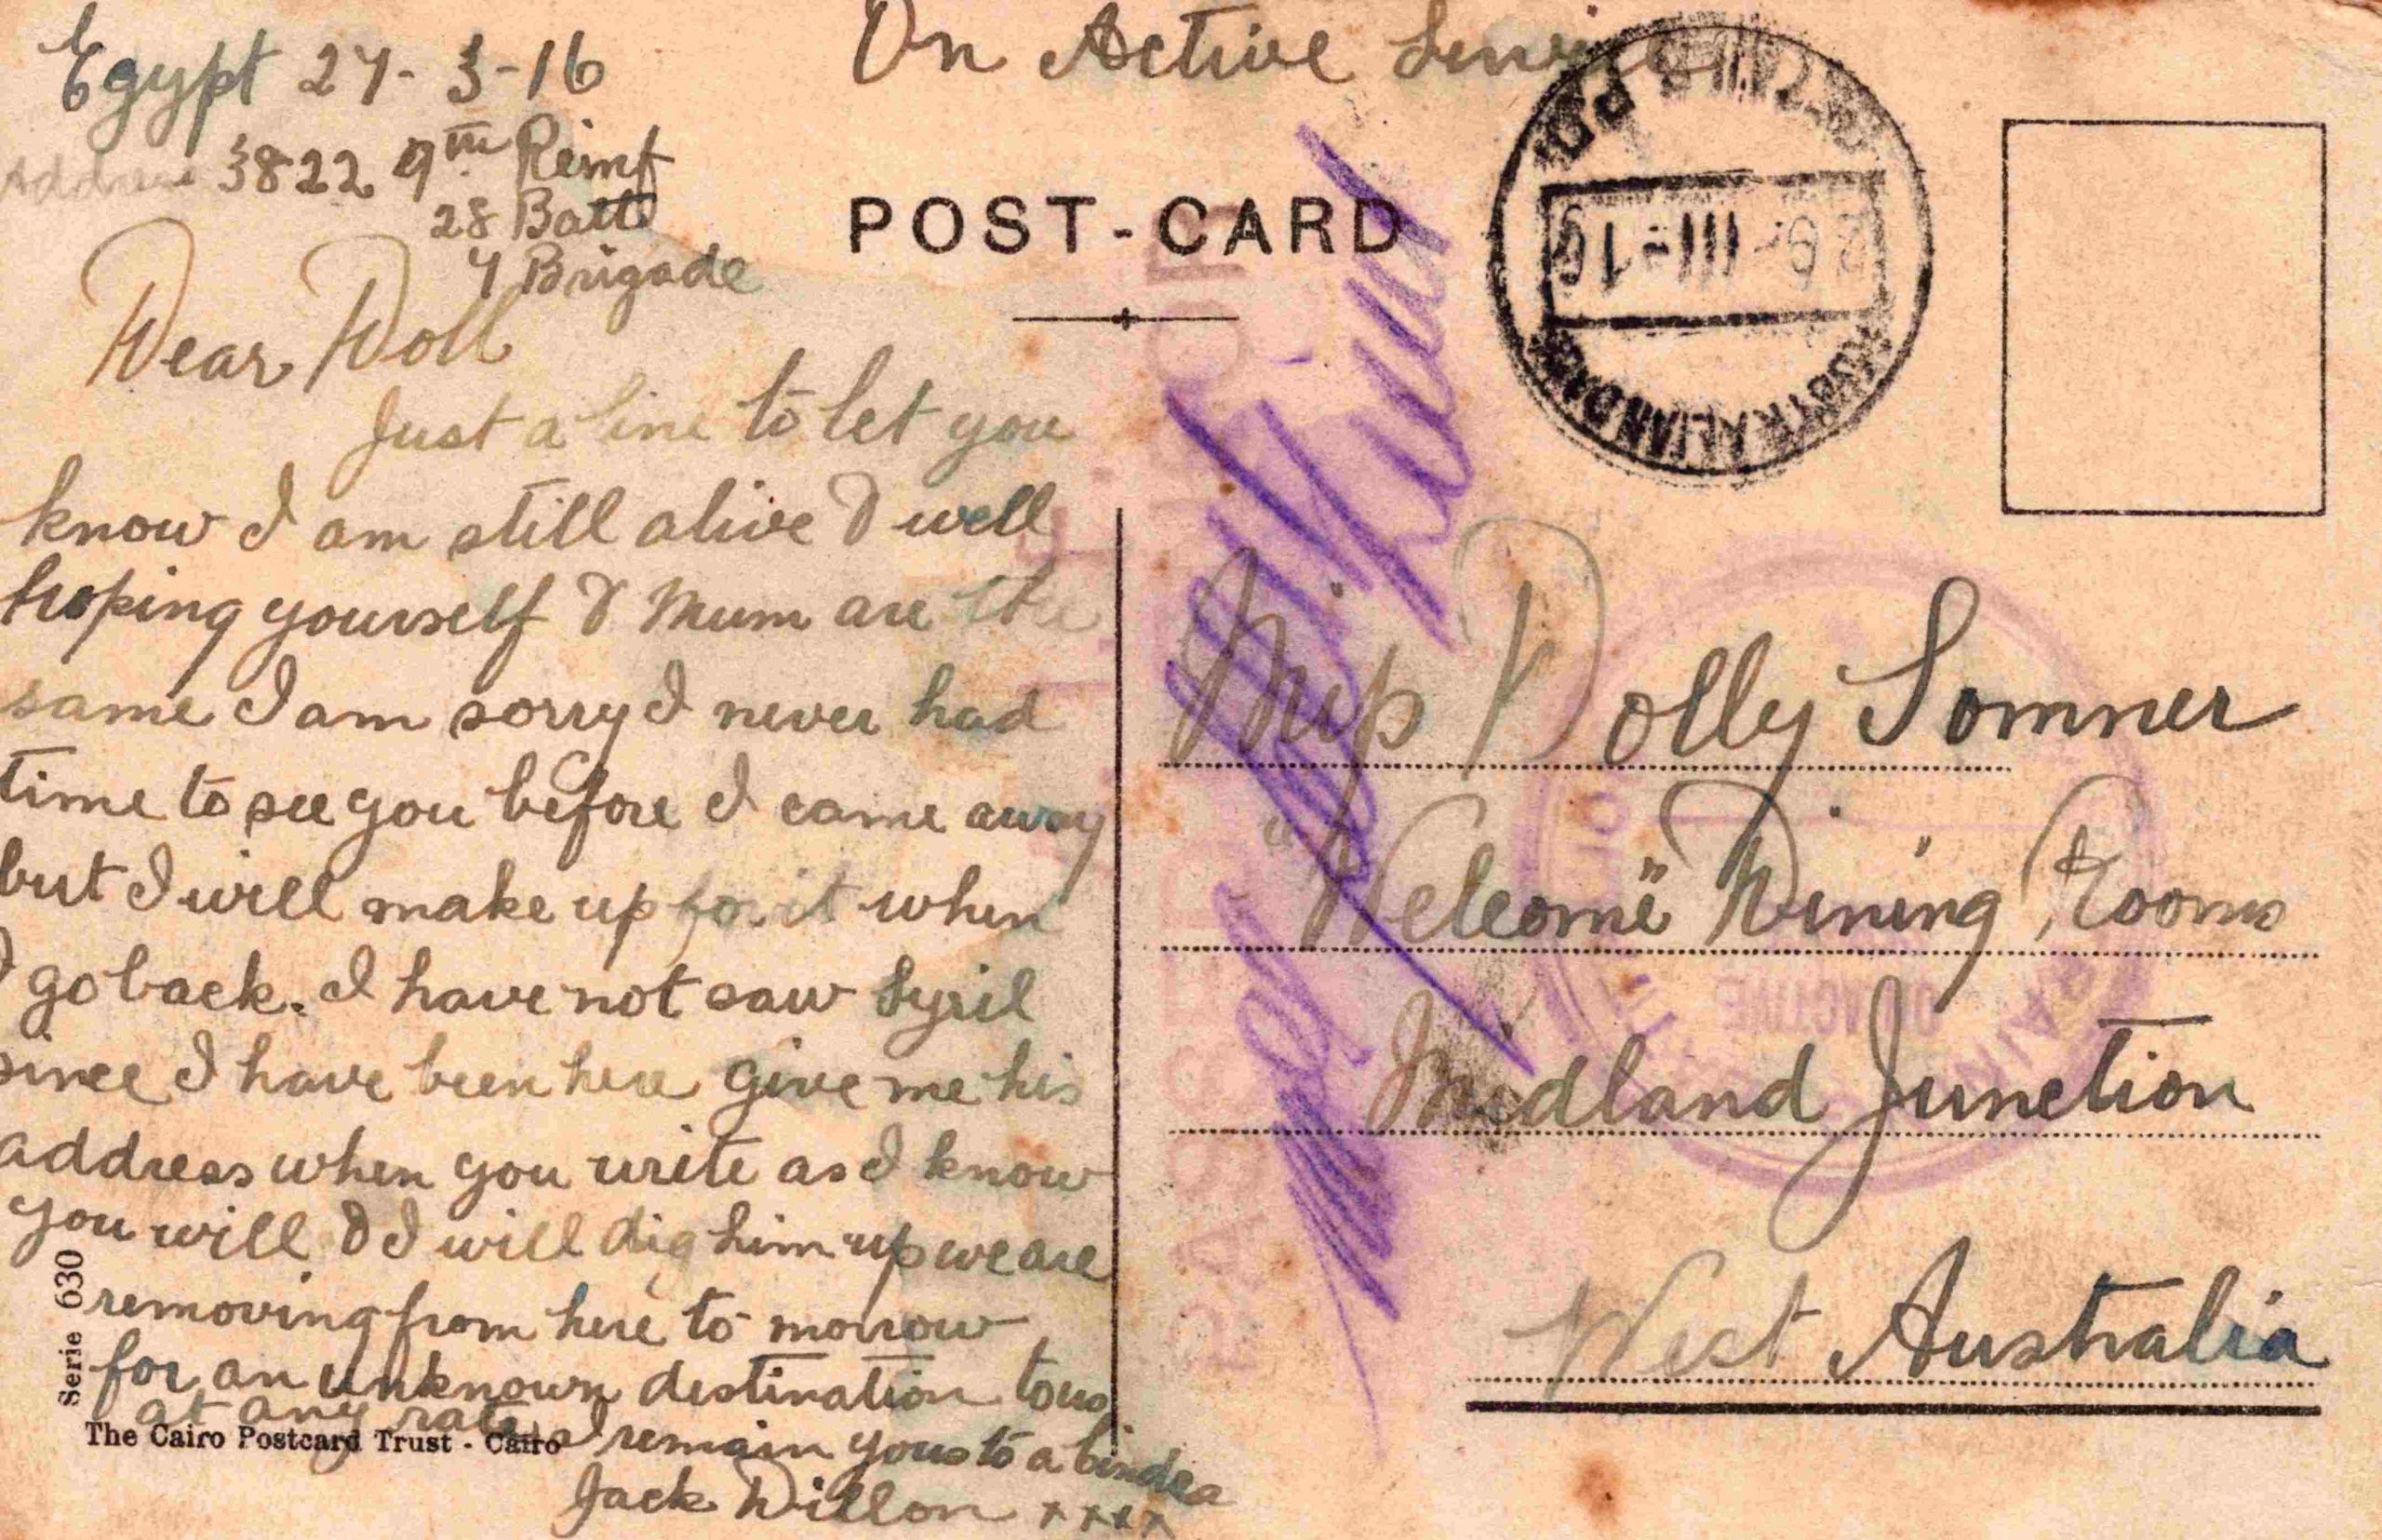 On Active Service
Egypt 27-3-16
Address 3822 9th Reinf
28 Batt
7 Brigade
Dear Doll
Just a line to let you
know I am still alive & well
hoping yourself & Mum are the
same I am sorry I never had
time to see you before I came away
but I will make up for it when
I go back. I have not saw Syril
since I have been here give me his
address when you write as I know
you will & I will dig him up we are
removing from here to morrow
for an unknown destination to us
at any rate I remain yours to a
Jack Dillon xxxx
Serie 630
The Cairo Postcard Trust - Cairo
POST-CARD
Miss Dolly Somner
"Welcome" Dining Rooms
Midland Junction
West Australia
AUSTRALIAN
III-16
PASSED